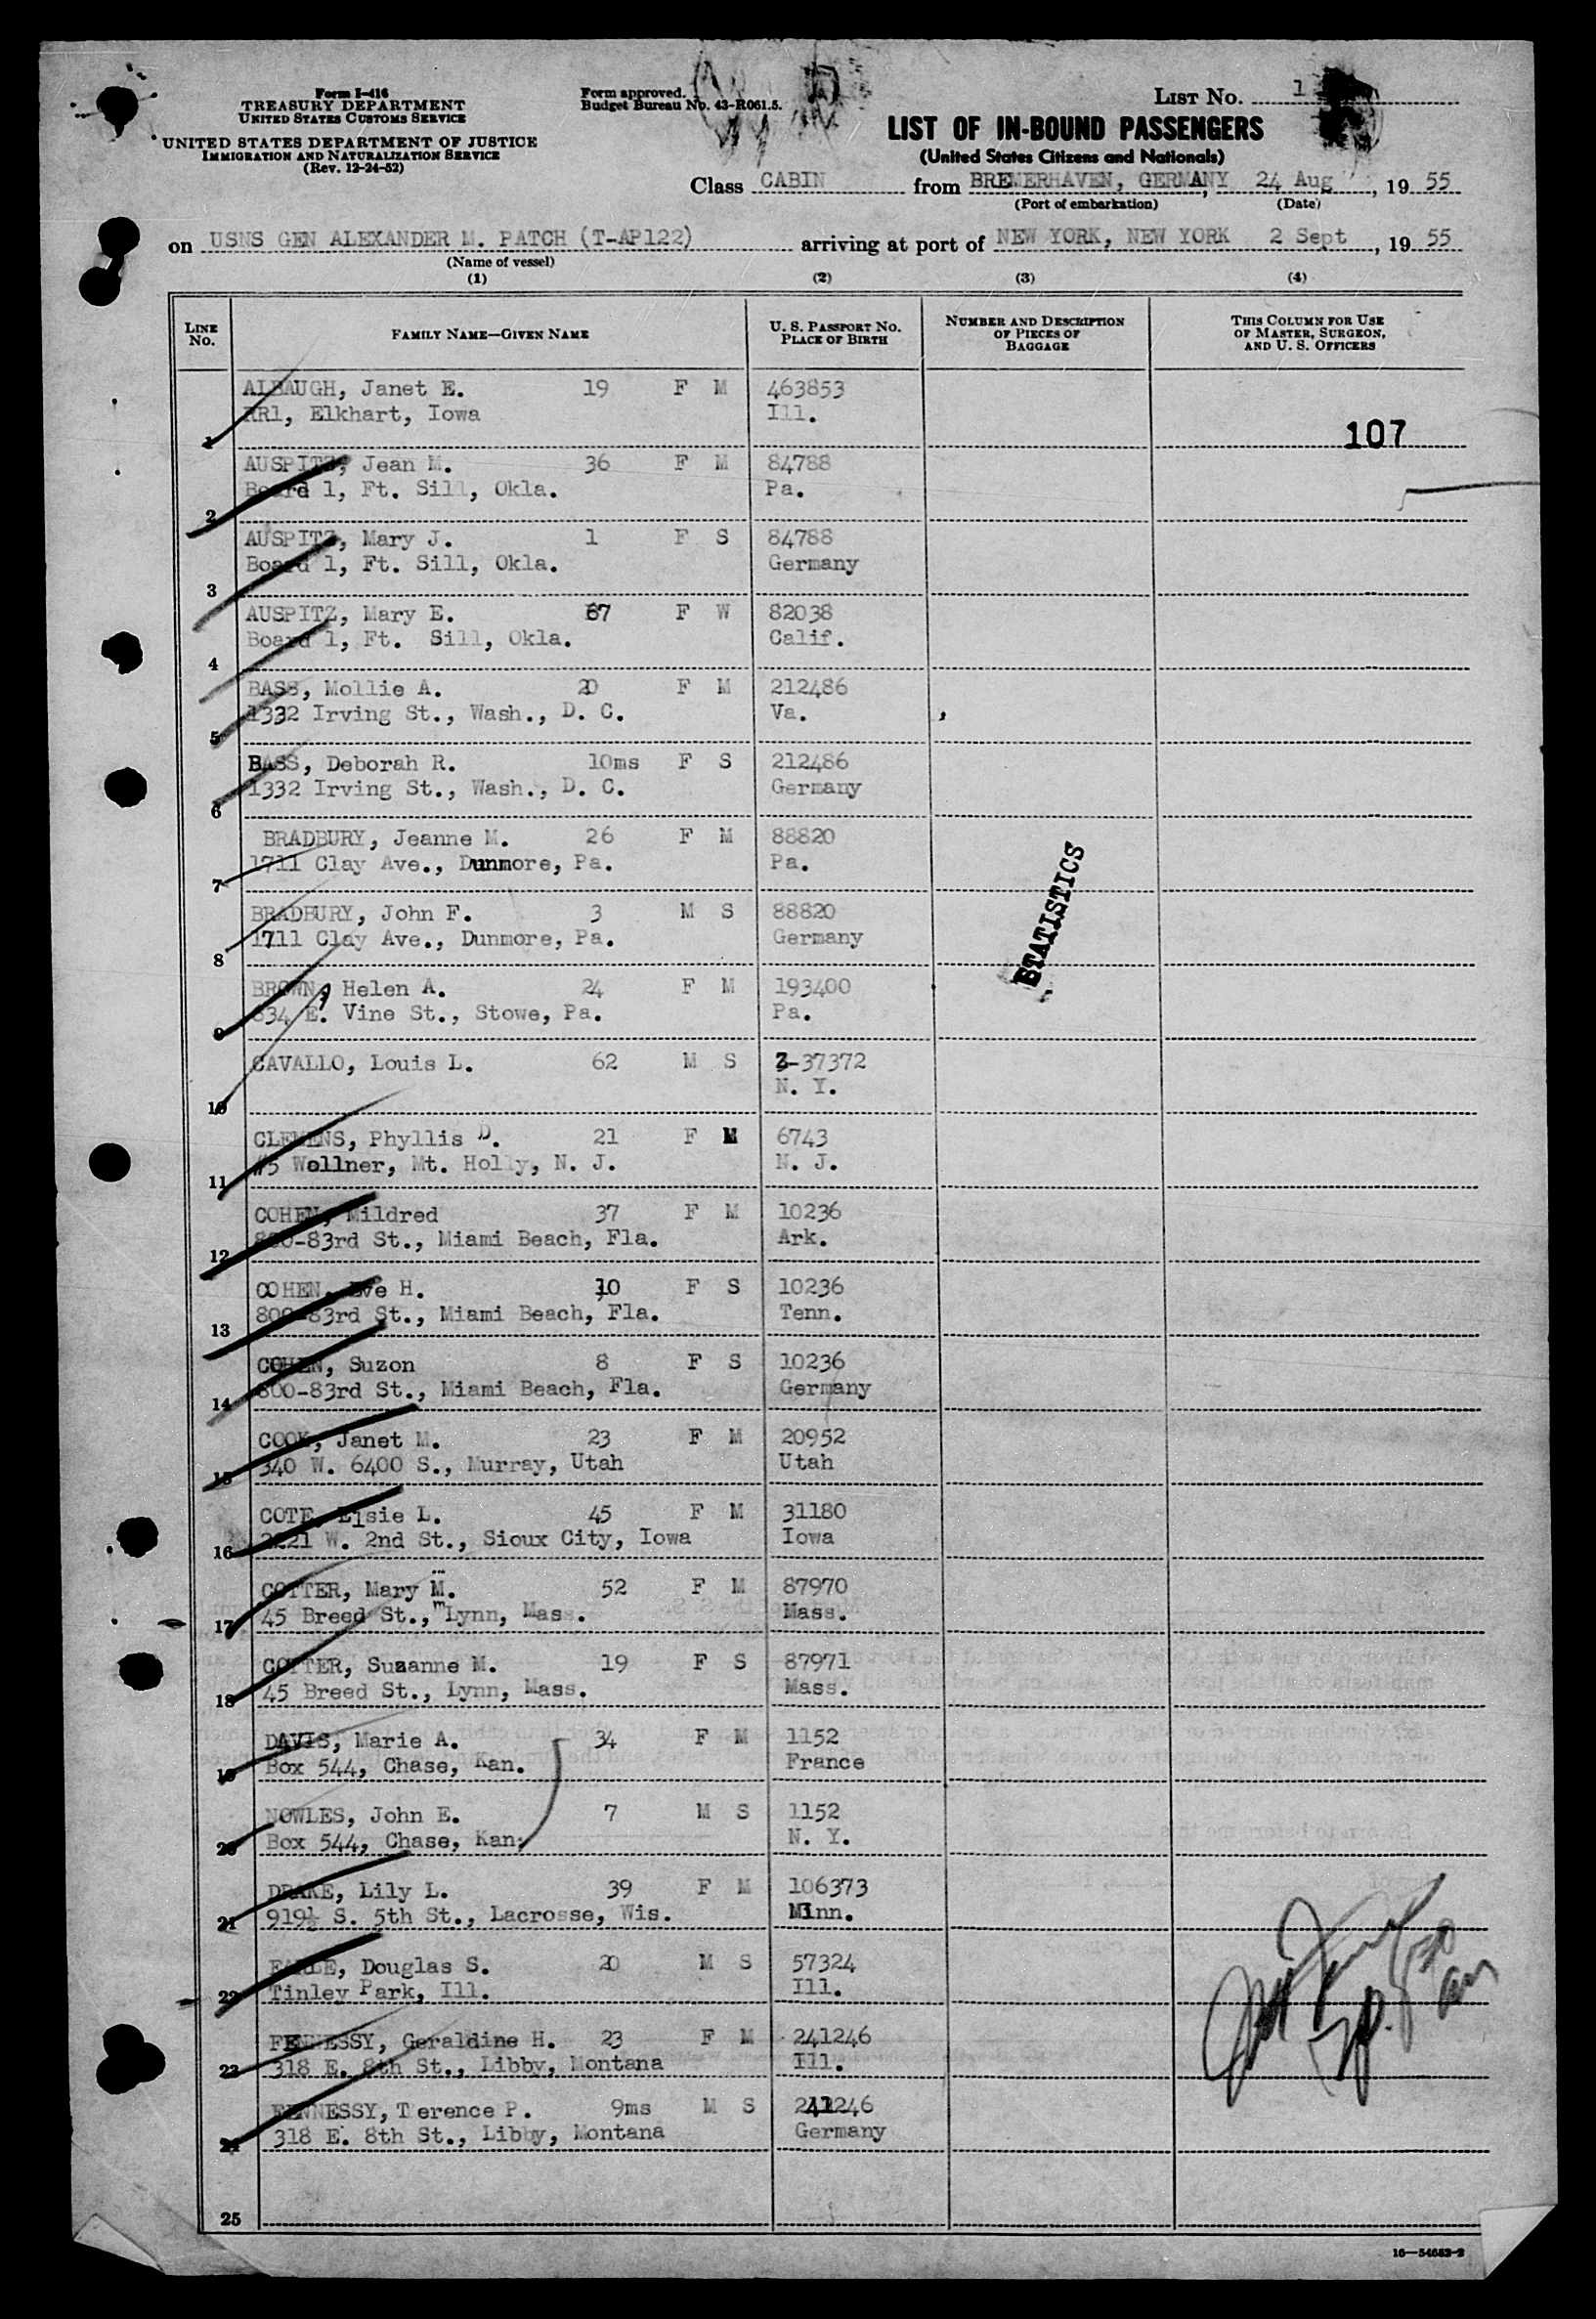 Form I-416
TREASURY DEPARTMENT
UNITED STATES CUSTOMS SERVICE
UNITED STATES DEPARTMENT OF JUSTICE
IMMIGRATION AND NATURALIZATION SERVICE
(Rev. 12-24-52)
Form approved.
Budget Bureau No. 43-R061.5.
LIST NO. 1
LIST OF IN-BOUND PASSENGERS
(United States Citizens and Nationals)
Class CABIN from BREMERHAVEN, GERMANY, 24 Aug, 19 55
(Port of embarkation) (Date)
on USNS GEN ALEXANDER M. PATCH (T-AP122) arriving at port of NEW YORK, NEW YORK 2 Sept, 19 55
(Name of vessel)
(1) (2) (3) (4)
LINE NO. FAMILY NAME—GIVEN NAME U. S. PASSPORT NO. PLACE OF BIRTH NUMBER AND DESCRIPTION OF PIECES OF BAGGAGE THIS COLUMN FOR USE OF MASTER, SURGEON, AND U. S. OFFICERS
ALBAUGH, Janet E. 19 F M 463853
1 RR1, Elkhart, Iowa Ill.
107
AUSPITZ, Jean M. 36 F M 84788
2 Board 1, Ft. Sill, Okla. Pa.
AUSPITZ, Mary J. 1 F S 84788
3 Board 1, Ft. Sill, Okla. Germany
AUSPITZ, Mary E. 67 F W 82038
4 Board 1, Ft. Sill, Okla. Calif.
BASS, Mollie A. 20 F M 212486
5 1332 Irving St., Wash., D. C. Va.
BASS, Deborah R. 10ms F S 212486
6 1332 Irving St., Wash., D. C. Germany
BRADBURY, Jeanne M. 26 F M 88820
7 1711 Clay Ave., Dunmore, Pa. Pa.
BRADBURY, John F. 3 M S 88820
8 1711 Clay Ave., Dunmore, Pa. Germany
STATISTICS
BROWN, Helen A. 24 F M 193400
9 834 E. Vine St., Stowe, Pa. Pa.
CAVALLO, Louis L. 62 M S Z-37372
10 N. Y.
CLEMENS, Phyllis D. 21 F M 6743
11 #5 Wollner, Mt. Holly, N. J. N. J.
COHEN, Mildred 37 F M 10236
12 800-83rd St., Miami Beach, Fla. Ark.
COHEN, Eve H. 10 F S 10236
13 800-83rd St., Miami Beach, Fla. Tenn.
COHEN, Suzon 8 F S 10236
14 800-83rd St., Miami Beach, Fla. Germany
COOK, Janet M. 23 F M 20952
15 340 W. 6400 S., Murray, Utah Utah
COTE, Elsie L. 45 F M 31180
16 2221 W. 2nd St., Sioux City, Iowa Iowa
COTTER, Mary M. 52 F M 87970
17 45 Breed St., Lynn, Mass. Mass.
COTTER, Suzanne M. 19 F S 87971
18 45 Breed St., Lynn, Mass. Mass.
DAVIS, Marie A. 34 F M 1152
19 Box 544, Chase, Kan. France
NOWLES, John E. 7 M S 1152
20 Box 544, Chase, Kan. N. Y.
DRAKE, Lily L. 39 F M 106373
21 919½ S. 5th St., Lacrosse, Wis. Minn.
EARLE, Douglas S. 20 M S 57324
22 Tinley Park, Ill. Ill.
FENNESSY, Geraldine H. 23 F M 241246
23 318 E. 8th St., Libby, Montana Ill.
FENNESSY, Terence P. 9ms M S 241246
24 318 E. 8th St., Libby, Montana Germany
25
16—54682-2